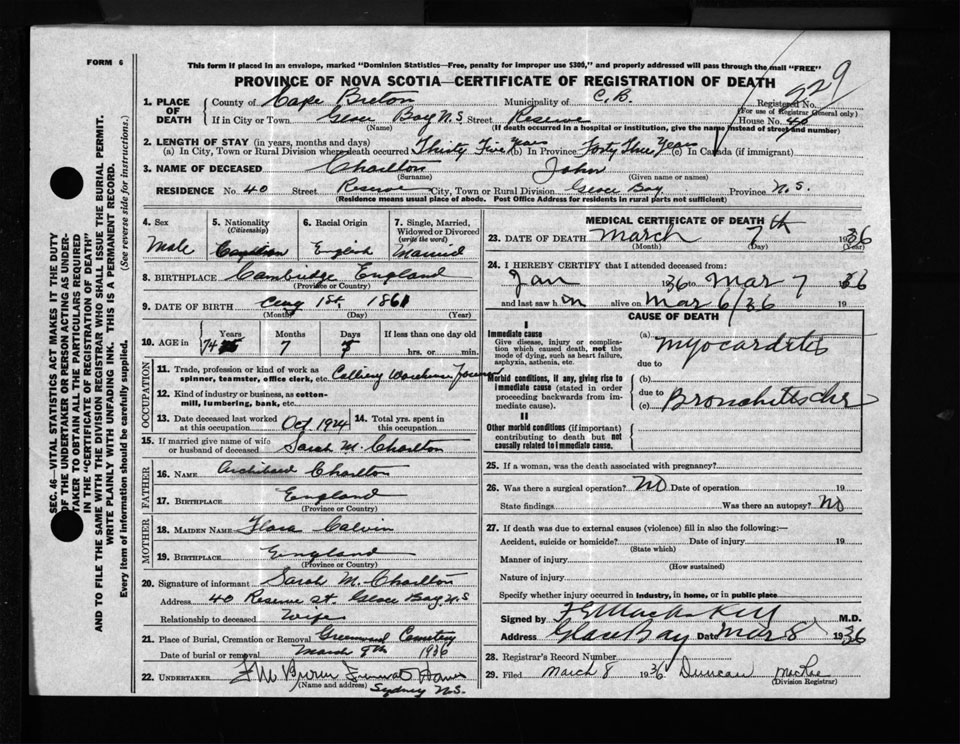 FORM 6
This form if placed in an envelope, marked "Dominion Statistics—Free, penalty for improper use $300," and properly addressed will pass through the mail "FREE"
PROVINCE OF NOVA SCOTIA—CERTIFICATE OF REGISTRATION OF DEATH
929
1. PLACE OF DEATH
County of Cape Breton Municipality of C.B. Registered No.
(For use of Registrar General only)
If in City or Town Glace Bay N.S. Street Reserve House No. 40
(Name) (If death occurred in a hospital or institution, give the name instead of street and number)
2. LENGTH OF STAY (in years, months and days)
(a) In City, Town or Rural Division where death occurred Thirty Five Years (b) In Province Forty Three Years (c) In Canada (if immigrant)
3. NAME OF DECEASED Charlton John
(Surname) (Given name or names)
RESIDENCE No. 40 Street Reserve City, Town or Rural Division Glace Bay Province N.S.
(Residence means usual place of abode. Post Office Address for residents in rural parts not sufficient)
4. Sex 5. Nationality (Citizenship) 6. Racial Origin 7. Single, Married, Widowed or Divorced (write the word)
Male Canadian English Married
8. BIRTHPLACE Cambridge England
(Province or Country)
9. DATE OF BIRTH Aug 1st, 1861
(Month) (Day) (Year)
10. AGE in Years Months Days If less than one day old
74 7 hrs. or min.
OCCUPATION
11. Trade, profession or kind of work as spinner, teamster, office clerk, etc. Colliery Warehouse Foreman
12. Kind of industry or business, as cotton-mill, lumbering, bank, etc.
13. Date deceased last worked at this occupation Oct. 1924 14. Total yrs. spent in this occupation
15. If married give name of wife or husband of deceased Sarah M. Charlton
FATHER
16. NAME Archibald Charlton
17. BIRTHPLACE England
(Province or Country)
MOTHER
18. MAIDEN NAME Flora Calvin
19. BIRTHPLACE England
(Province or Country)
20. Signature of informant Sarah M. Charlton
Address 40 Reserve St. Glace Bay N.S
Relationship to deceased Wife
21. Place of Burial, Cremation or Removal Greenwood Cemetery
Date of burial or removal March 9th 1936
22. UNDERTAKER Funeral Home
(Name and address) Sydney N.S.
MEDICAL CERTIFICATE OF DEATH
23. DATE OF DEATH March 7th 1936
(Month) (Day) (Year)
24. I HEREBY CERTIFY that I attended deceased from:
Jan 1936 to Mar 7 1936
and last saw him alive on Mar 6/36 19
CAUSE OF DEATH
I
Immediate cause
Give disease, injury or complication which caused death, not the mode of dying, such as heart failure, asphyxia, asthenia, etc.
(a) Myocarditis
due to
Morbid conditions, if any, giving rise to immediate cause (stated in order proceeding backwards from immediate cause).
(b)
due to
(c) Bronchitis chr
II
Other morbid conditions (if important) contributing to death but not causally related to immediate cause.
25. If a woman, was the death associated with pregnancy?
26. Was there a surgical operation? No Date of operation 19
State findings Was there an autopsy? No
27. If death was due to external causes (violence) fill in also the following:—
Accident, suicide or homicide? Date of injury 19
(State which)
Manner of injury
(How sustained)
Nature of injury
Specify whether injury occurred in industry, in home, or in public place
Signed by M.D.
Address Glace Bay Date Mar 8 1936
28. Registrar's Record Number
29. Filed March 8 1936 Duncan MacRae
(Division Registrar)
SEC. 46—VITAL STATISTICS ACT MAKES IT THE DUTY
OF THE UNDERTAKER OR PERSON ACTING AS UNDER-
TAKER TO OBTAIN ALL THE PARTICULARS REQUIRED
IN THE "CERTIFICATE OF REGISTRATION OF DEATH"
AND TO FILE THE SAME WITH THE DIVISION REGISTRAR WHO SHALL ISSUE THE BURIAL PERMIT.
WRITE PLAINLY WITH UNFADING INK. THIS IS A PERMANENT RECORD.
Every item of information should be carefully supplied. (See reverse side for instructions.)